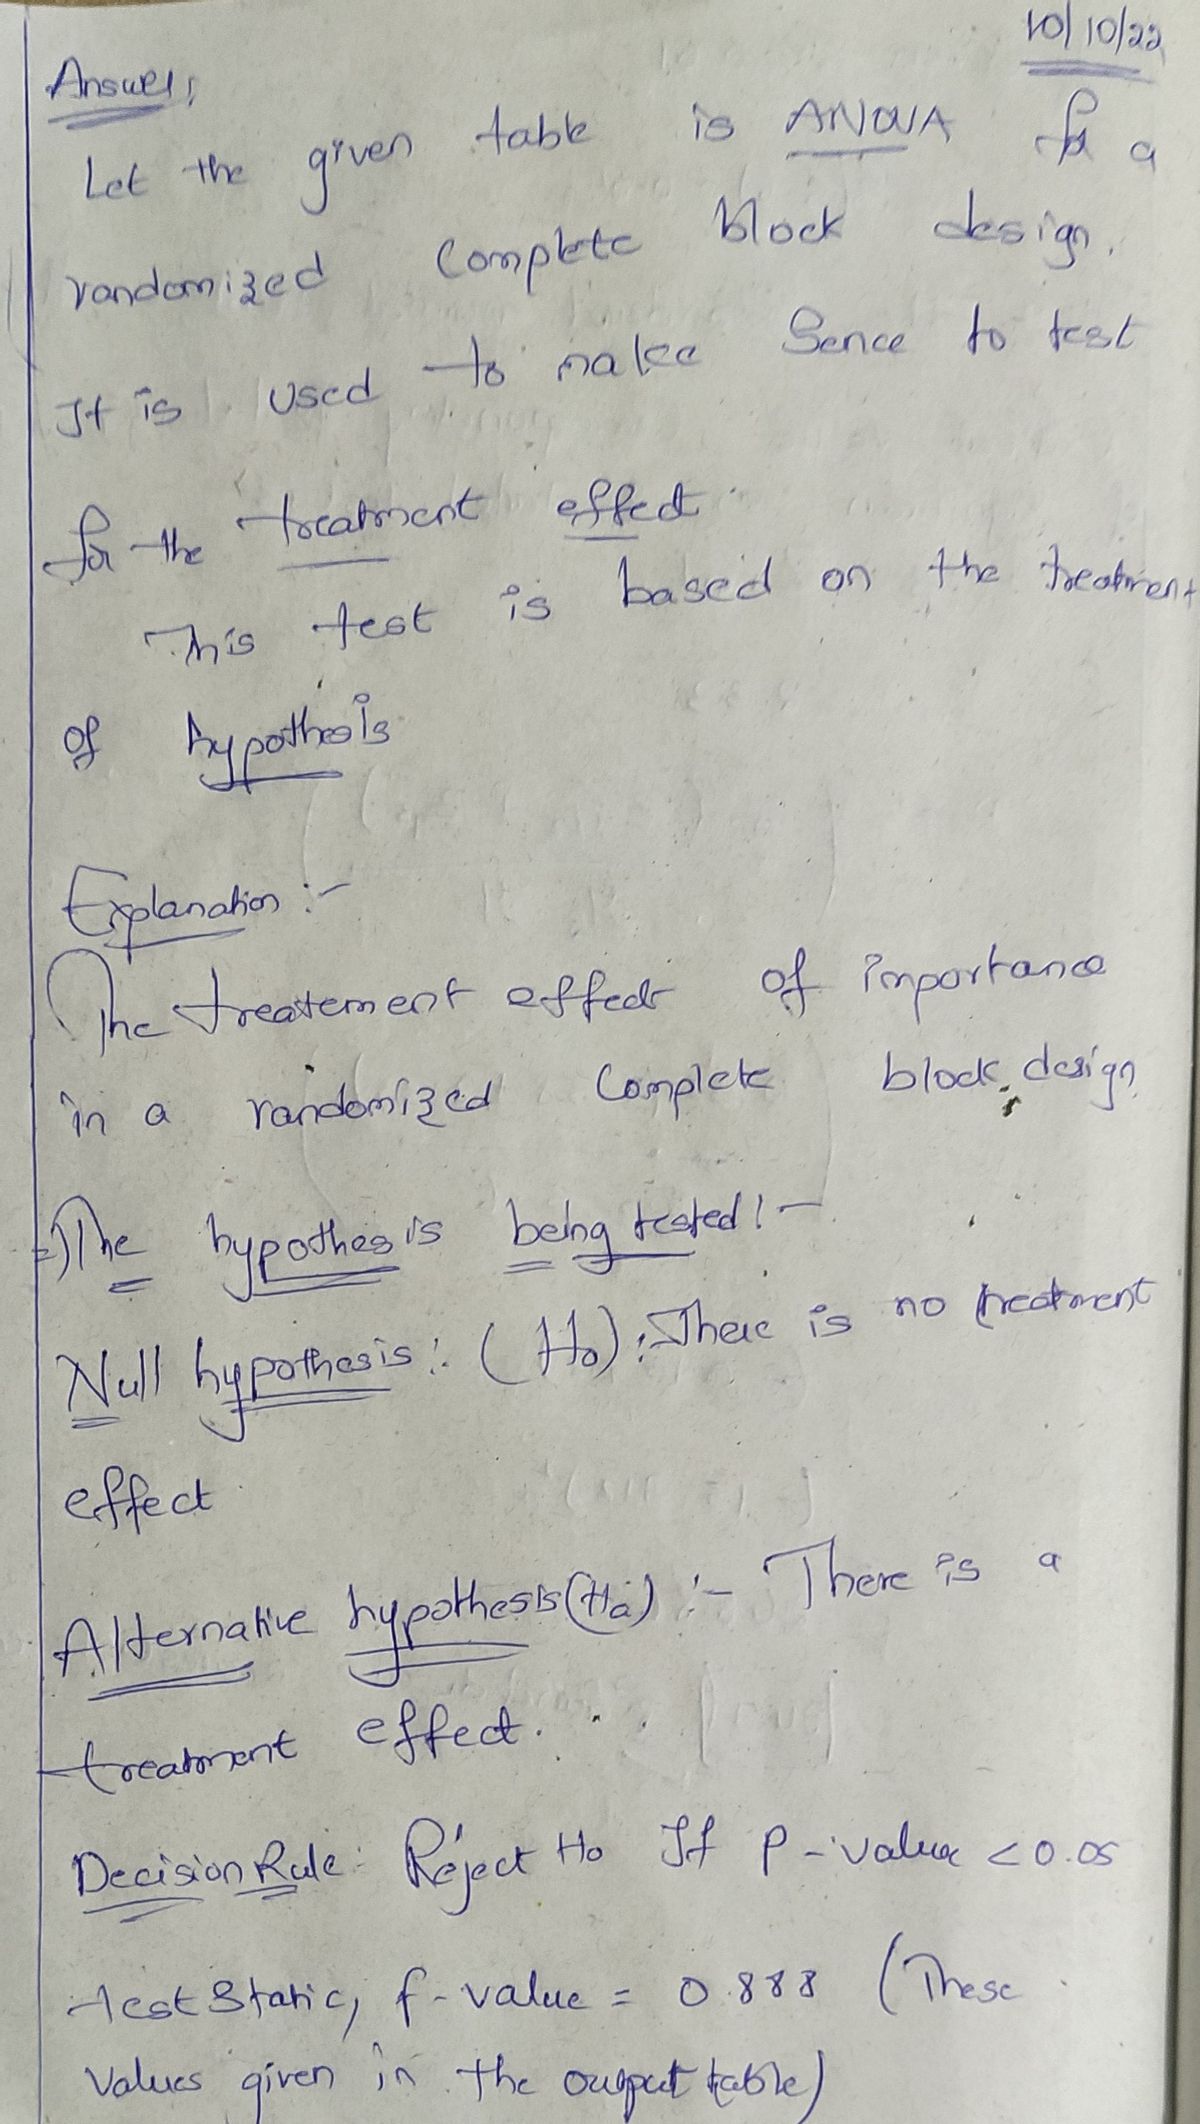 10/10/22
Answer:
Let the given table is ANOVA for a
randomized Complete block design.
It is used to make Sence to test
for the treatment effect.
This test is based on the treatment
of hypothesis
Explanation :-
The treatement effect of importance
in a randomized Complete block design
=) The hypothesis being tested :-
Null hypothesis :. (Ho) : There is no treatment
effect.
Alternative hypothesis (Ha) :- There is a
treatment effect.
Decision Rule: Reject Ho If P-value < 0.05
test Static, f-value = 0.888 (These
values given in the output table)